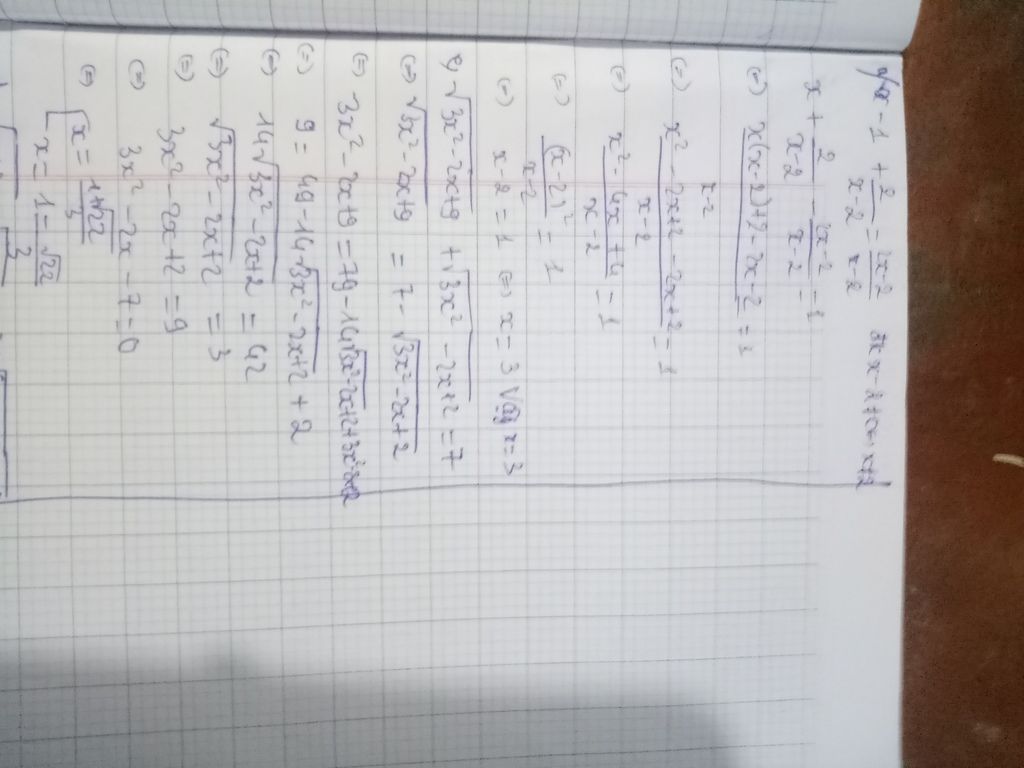 a/ x - 1 + 2/(x-2) = (2x-2)/(x-2)
x + 2/(x-2) - (2x-2)/(x-2) = 1
(=) (x(x-2)+2-2x-2)/(x-2) = 1
(=) (x² - 2x+2 - 2x+2)/(x-2) = 1
(=) (x² - 4x + 4)/(x-2) = 1
(=) (x-2)²/(x-2) = 1
(=) x-2 = 1 (=) x = 3 Vậy x=3
√(3x² - 2x+9) + √(3x² - 2x+2) = 7
(=) √(3x² - 2x+9) = 7 - √(3x² - 2x+2)
(=) 3x² - 2x+9 = 49 - 14√(3x² - 2x+2) + 3x² - 2x+2
(=) 9 = 49 - 14√(3x² - 2x+2) + 2
(=) 14√(3x² - 2x+2) = 42
(=) √(3x² - 2x+2) = 3
(=) 3x² - 2x+2 = 9
(=) 3x² - 2x - 7 = 0
(=) [ x = (1+√22)/3
x = (1-√22)/3